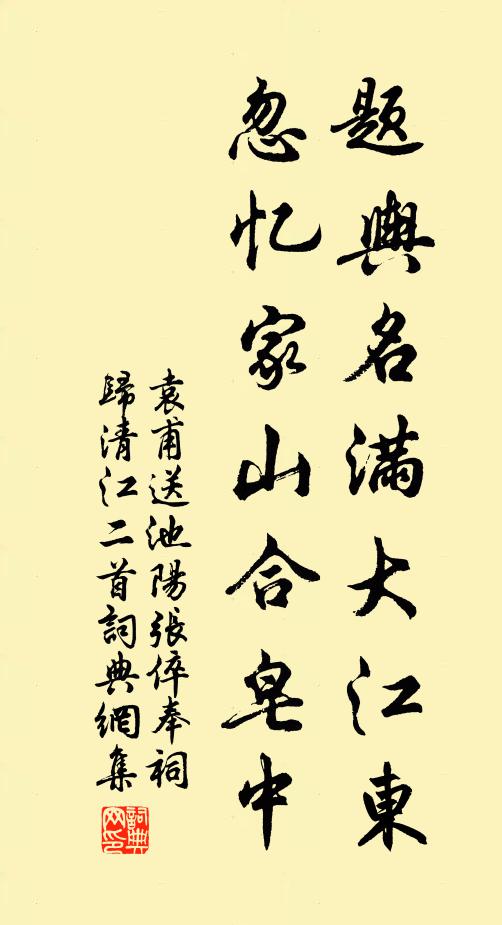 題輿名滿大江東
忽忆家山合皂中
袁甫送池陽張倅奉祠
歸清江二首詞典網集
詞典网印